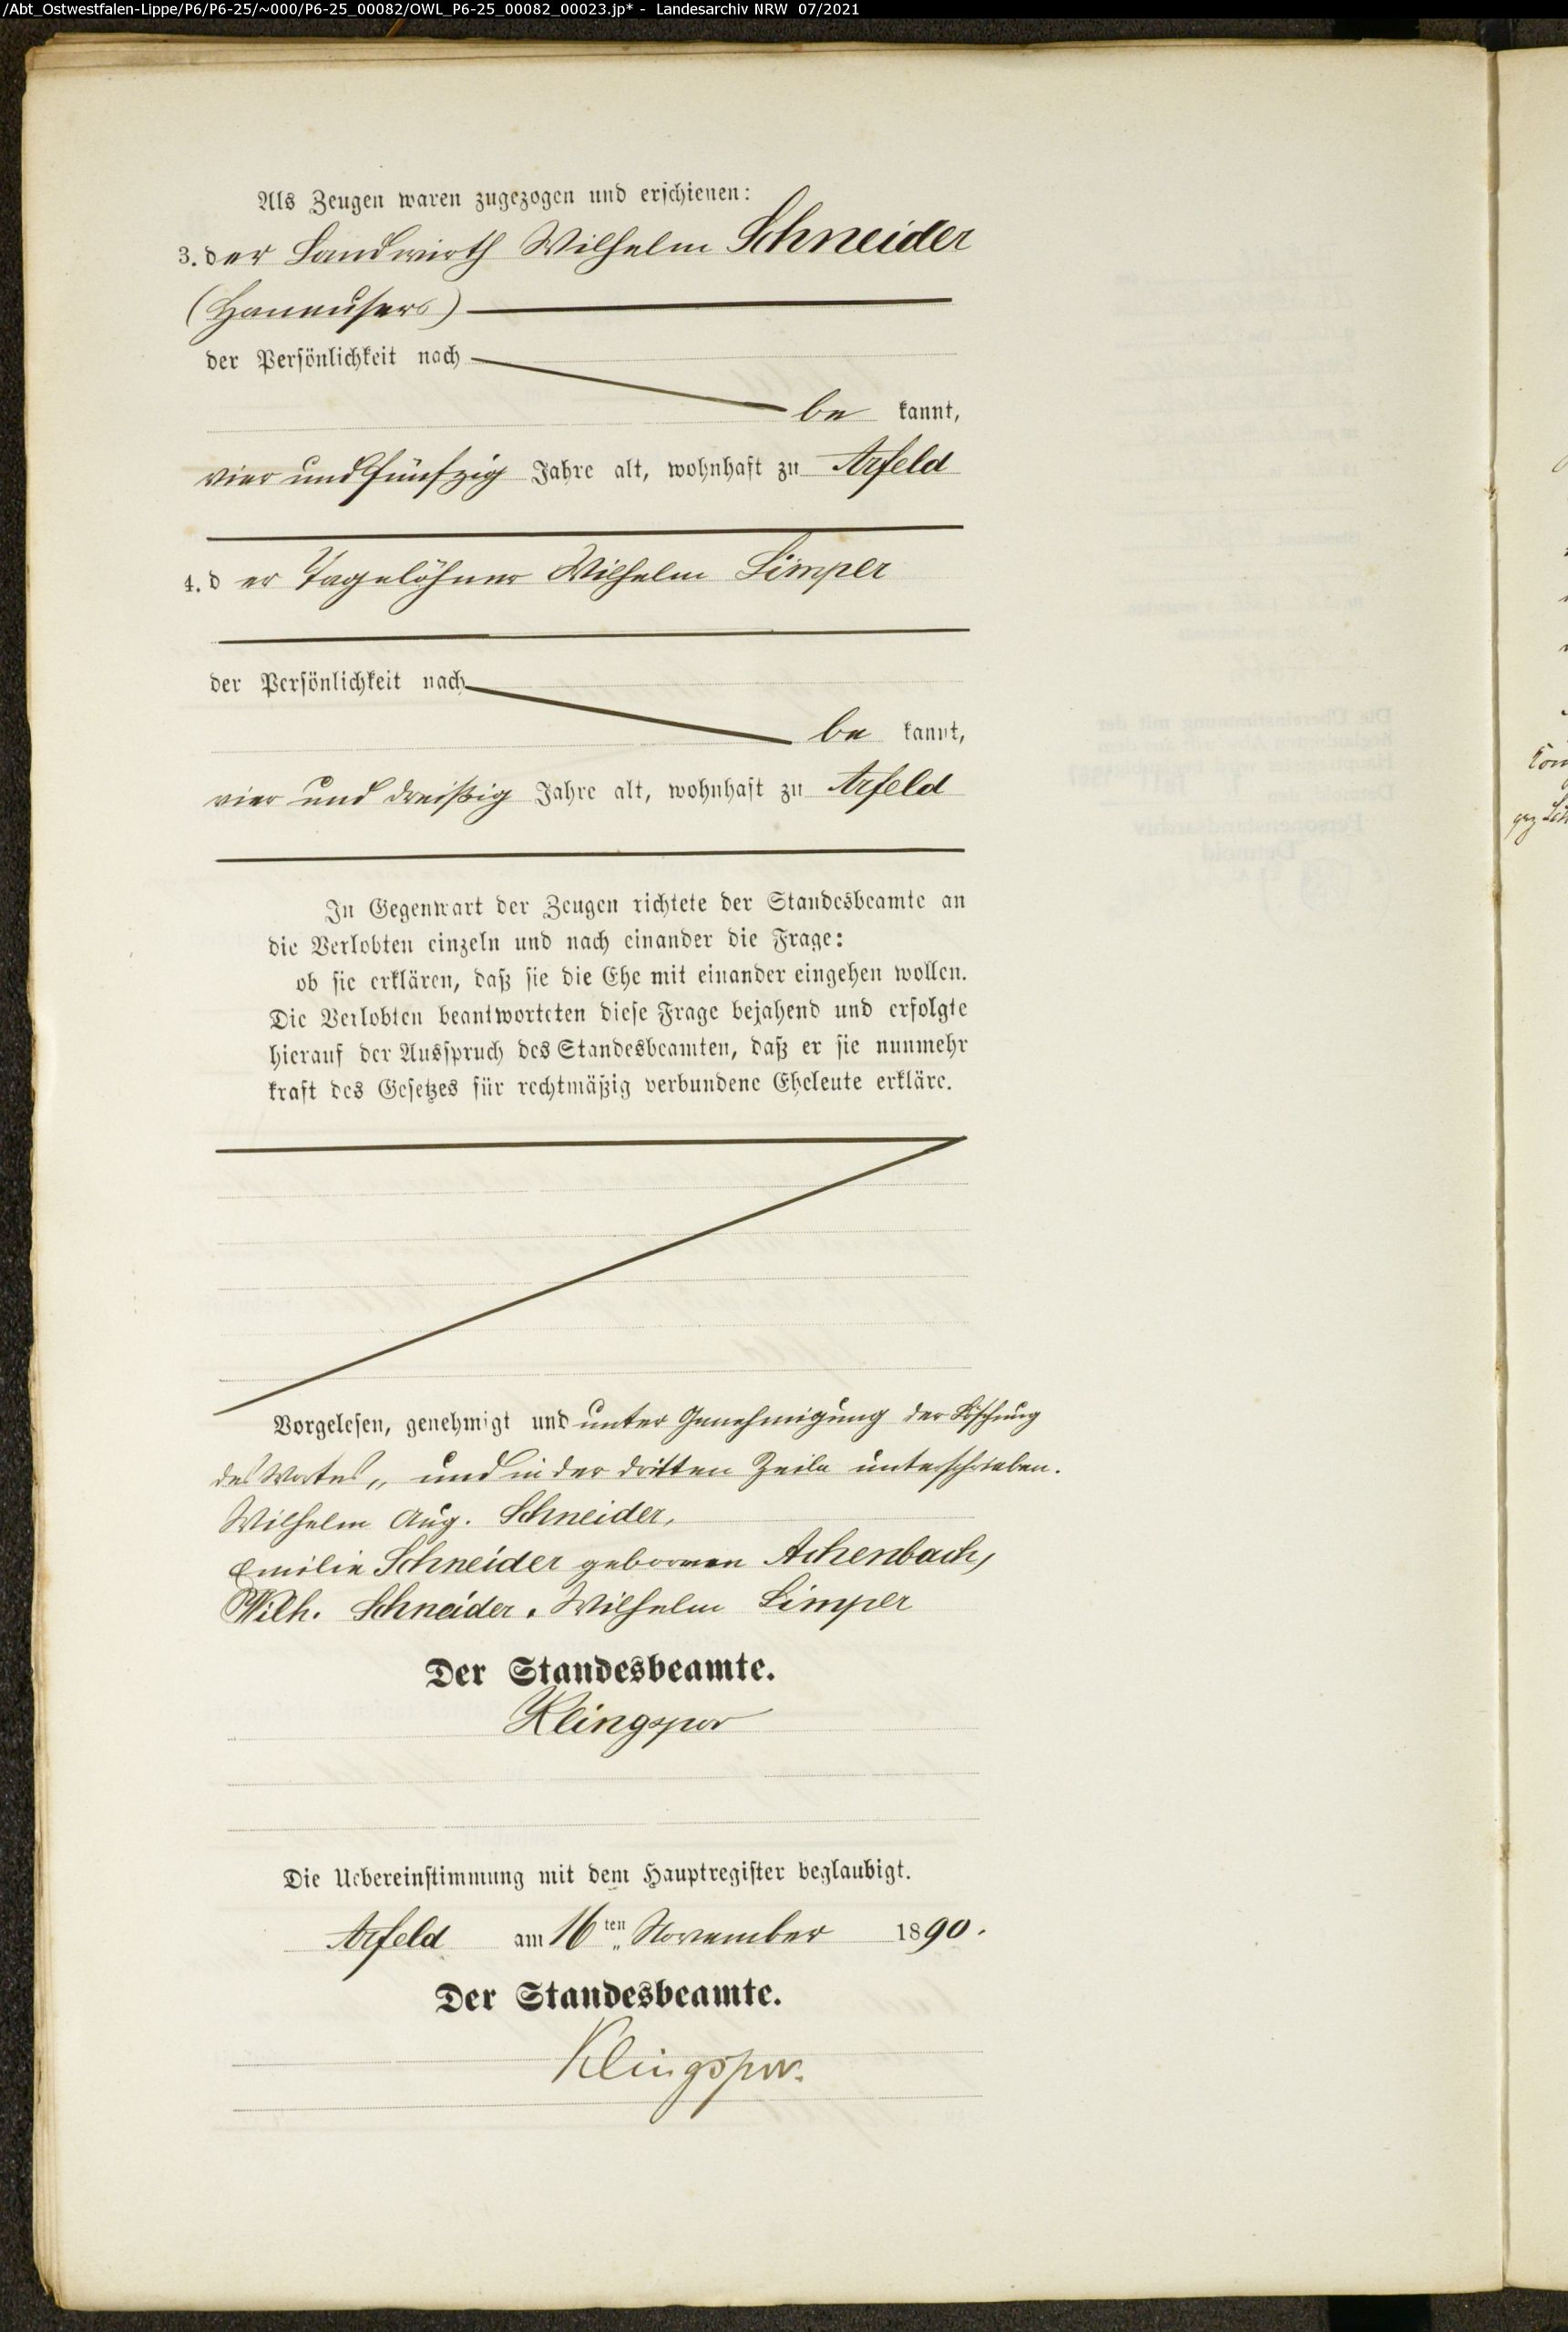 /Abt_Ostwestfalen-Lippe/P6/P6-25/~000/P6-25_00082/OWL_P6-25_00082_00023.jp* - Landesarchiv NRW 07/2021
Als Zeugen waren zugezogen und erschienen:
3. der Landwirth Wilhelm Schneider
(Hanausers)
der Persönlichkeit nach
be kannt,
vier und fünfzig Jahre alt, wohnhaft zu Arfeld
4. d er Tagelöhner Wilhelm Limper
der Persönlichkeit nach
be kannt,
vier und dreißig Jahre alt, wohnhaft zu Arfeld
In Gegenwart der Zeugen richtete der Standesbeamte an
die Verlobten einzeln und nach einander die Frage:
ob sie erklären, daß sie die Ehe mit einander eingehen wollen.
Die Verlobten beantworteten diese Frage bejahend und erfolgte
hierauf der Ausspruch des Standesbeamten, daß er sie nunmehr
kraft des Gesetzes für rechtmäßig verbundene Eheleute erkläre.
Vorgelesen, genehmigt und unter Genehmigung der Löschung
des Wortes „ und in der dritten Zeile unterschrieben.
Wilhelm Aug. Schneider,
Emilie Schneider geborenen Achenbach,
Wilh. Schneider. Wilhelm Limper
Der Standesbeamte.
Klingspor
Die Uebereinstimmung mit dem Hauptregister beglaubigt.
Arfeld am 16ten November 1890.
Der Standesbeamte.
Klingspor.